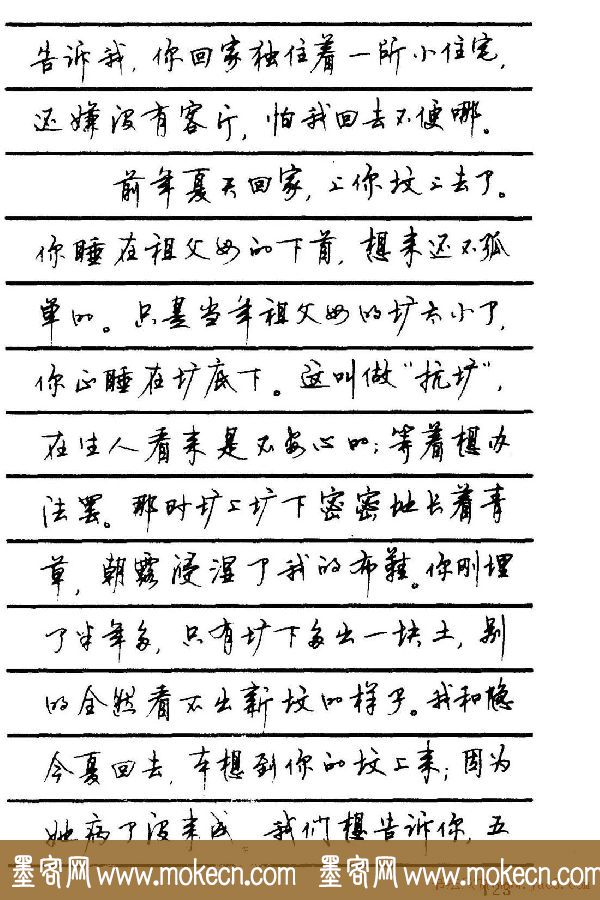 告诉我，你回家独住着一所小住宅，
还嫌没有客厅，怕我回去不便哪。
前年夏天回家，上你坟上去了。
你睡在祖父母的下首，想来还不孤
单的。只是当年祖父母的圹太小了，
你正睡在圹底下。这叫做“抗圹”，
在生人看来是不安心的；等着想办
法罢。那时圹上圹下密密地长着青
草，朝露浸湿了我的布鞋。你刚埋
了半年多，只有圹下多出一块土，别
的全然看不出新坟的样子。我和隐
今夏回去，本想到你的坟上来；因为
她病了没来成 我们想告诉你，五
墨客网 www.mokecn.com 墨客网 www.mokecn.com